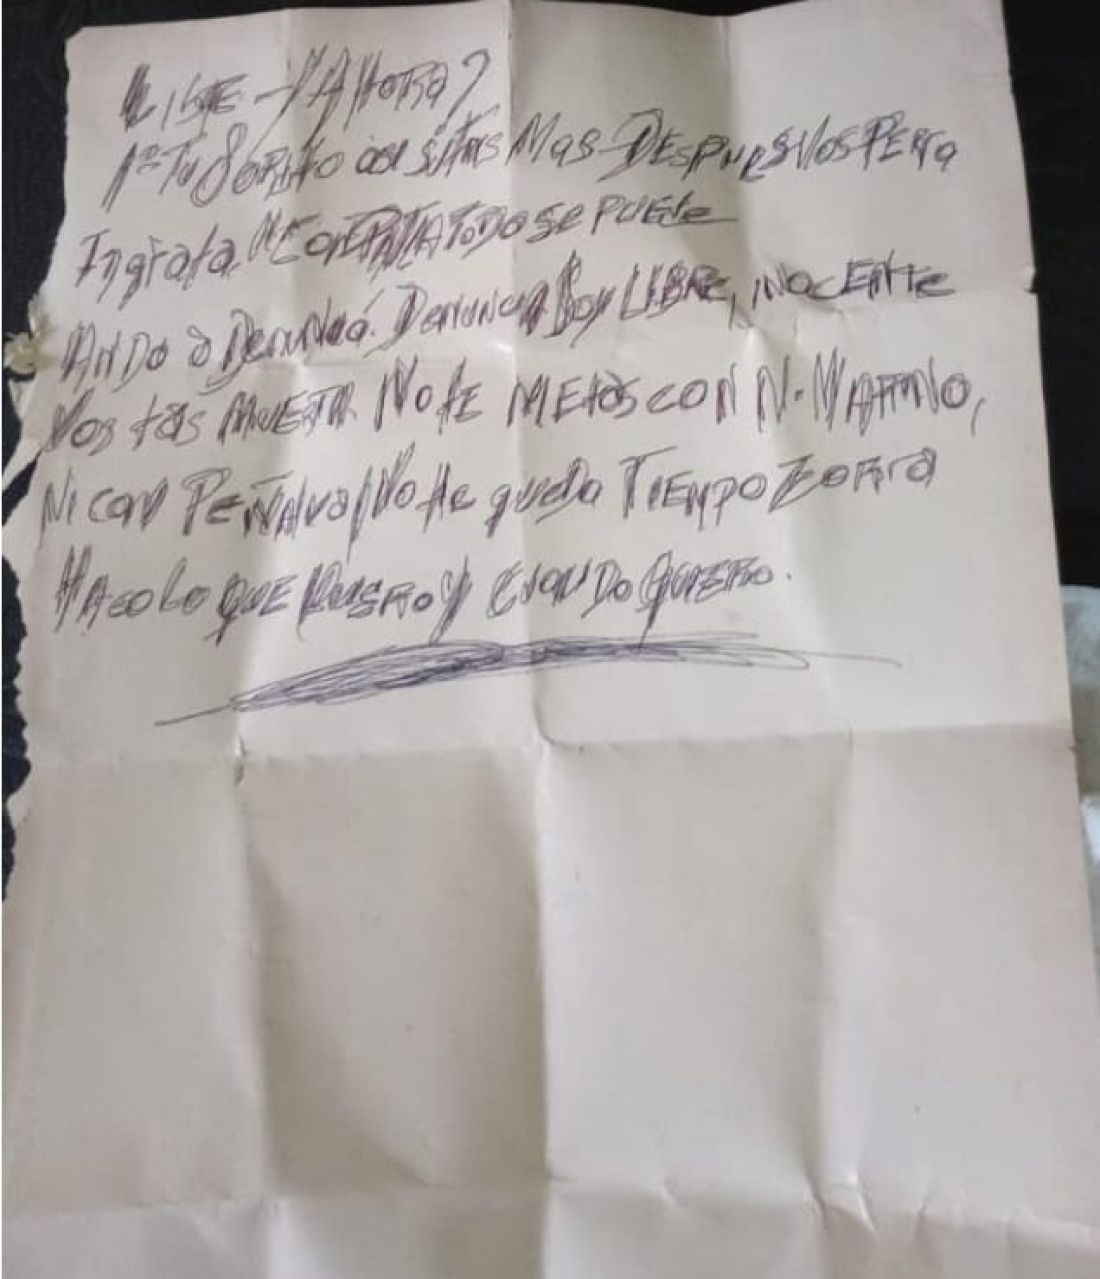 Viste - Y AHORA?
1º Tu gordito cositas MAS DESPUES VOS PERRA
Ingrata. ME TODO SE PUEDE
ANDÁ ó Denunciá. Denuncia Soy LIBRE, INOCENTE
Vos tás MUERTA NO TE METAS CON N. MARINO,
NI CON PEÑALVA NO te queda TIEMPO ZORRA
HAGO LO QUE QUIERO Y CUANDO QUIERO.